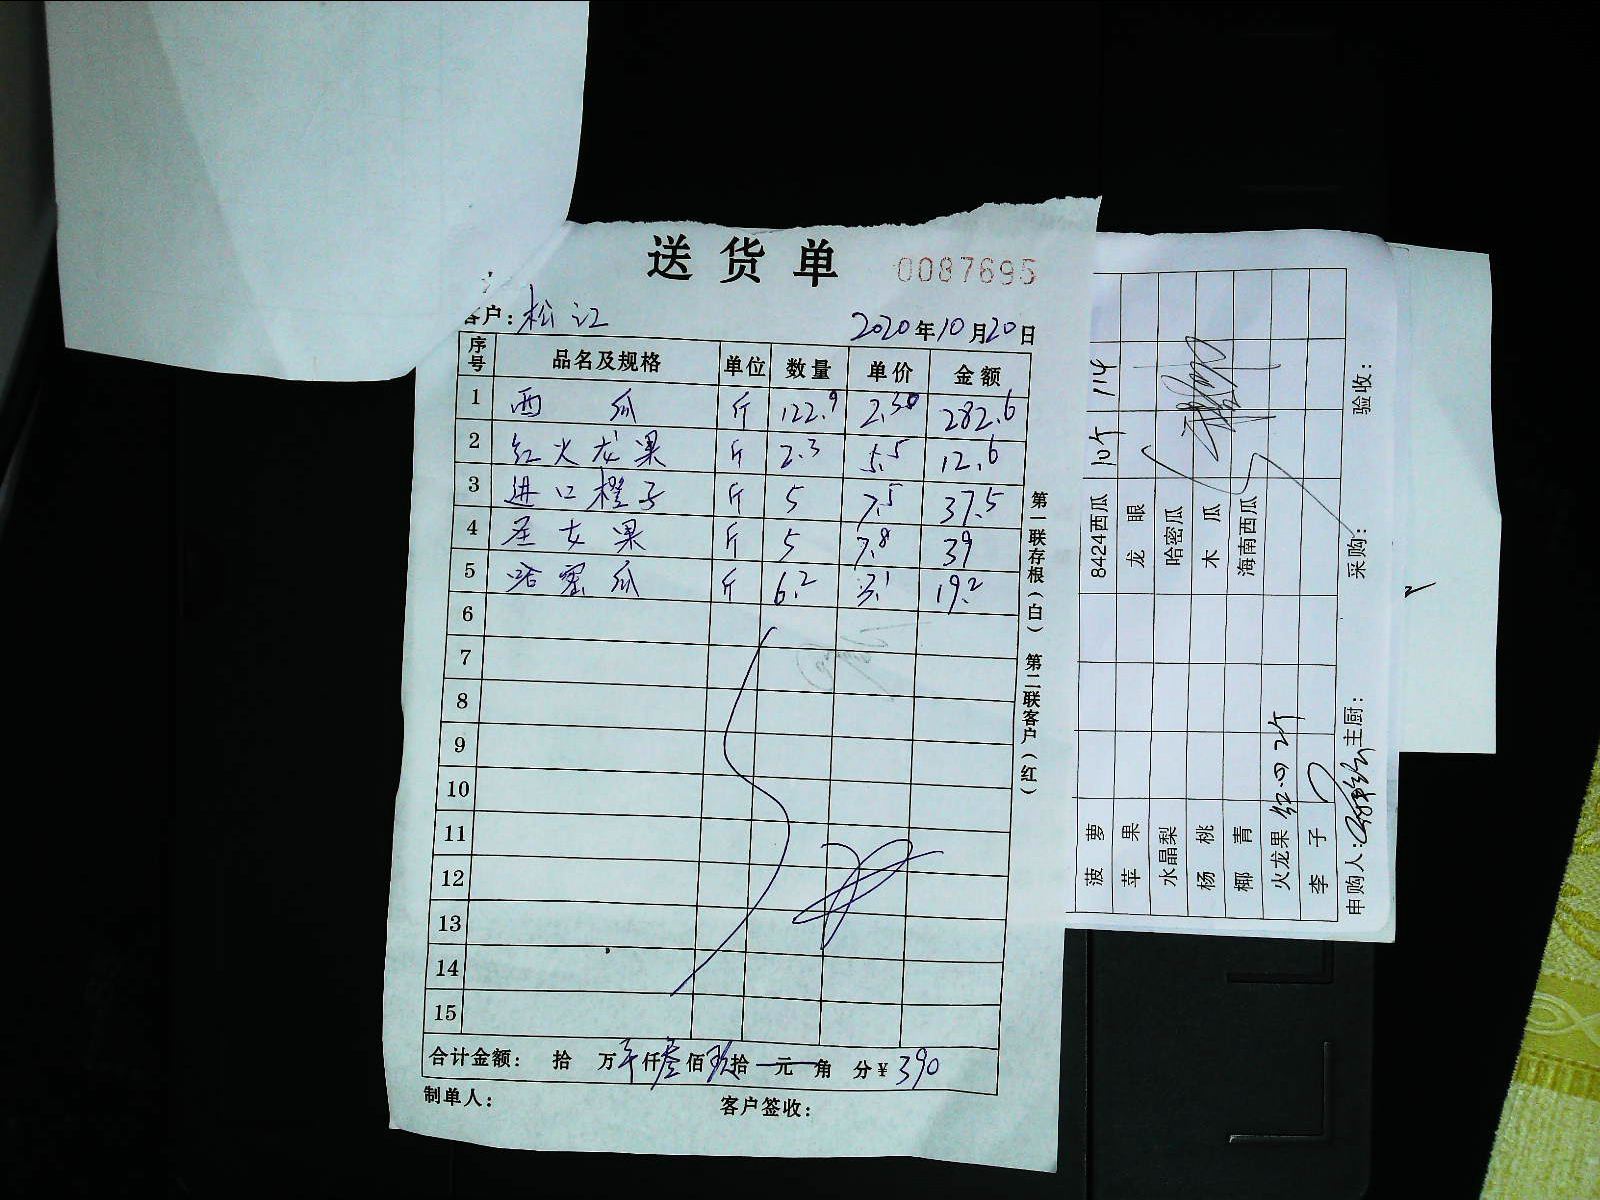 送货单 0087695
客户: 松江 2020年10月20日
序号 品名及规格 单位 数量 单价 金额
1 西瓜 斤 122.9 2.30 282.6
2 红火龙果 斤 2.3 5.5 12.6
3 进口橙子 斤 5 7.5 37.5
4 圣女果 斤 5 7.8 39
5 哈密瓜 斤 6.2 3.1 19.2
6
7
8
9
10
11
12
13
14
15
合计金额: 拾 万 仟叁佰玖拾 元 角 分¥390
制单人: 客户签收:
第一联存根(白) 第二联客户(红)
菠萝 8424西瓜 10个 114
苹果 龙眼
水晶梨 哈密瓜
杨桃 木瓜
椰青 海南西瓜
火龙果 红心 2个
李子
申购人: 主厨: 采购: 验收: